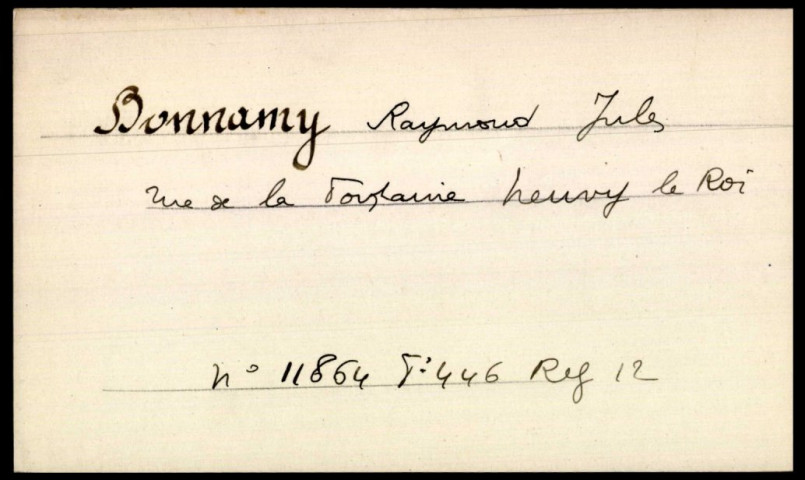 Bonnamy Raymond Jules
rue de la Fontaine Neuvy le Roi
N° 11864 F° 446 Reg 12